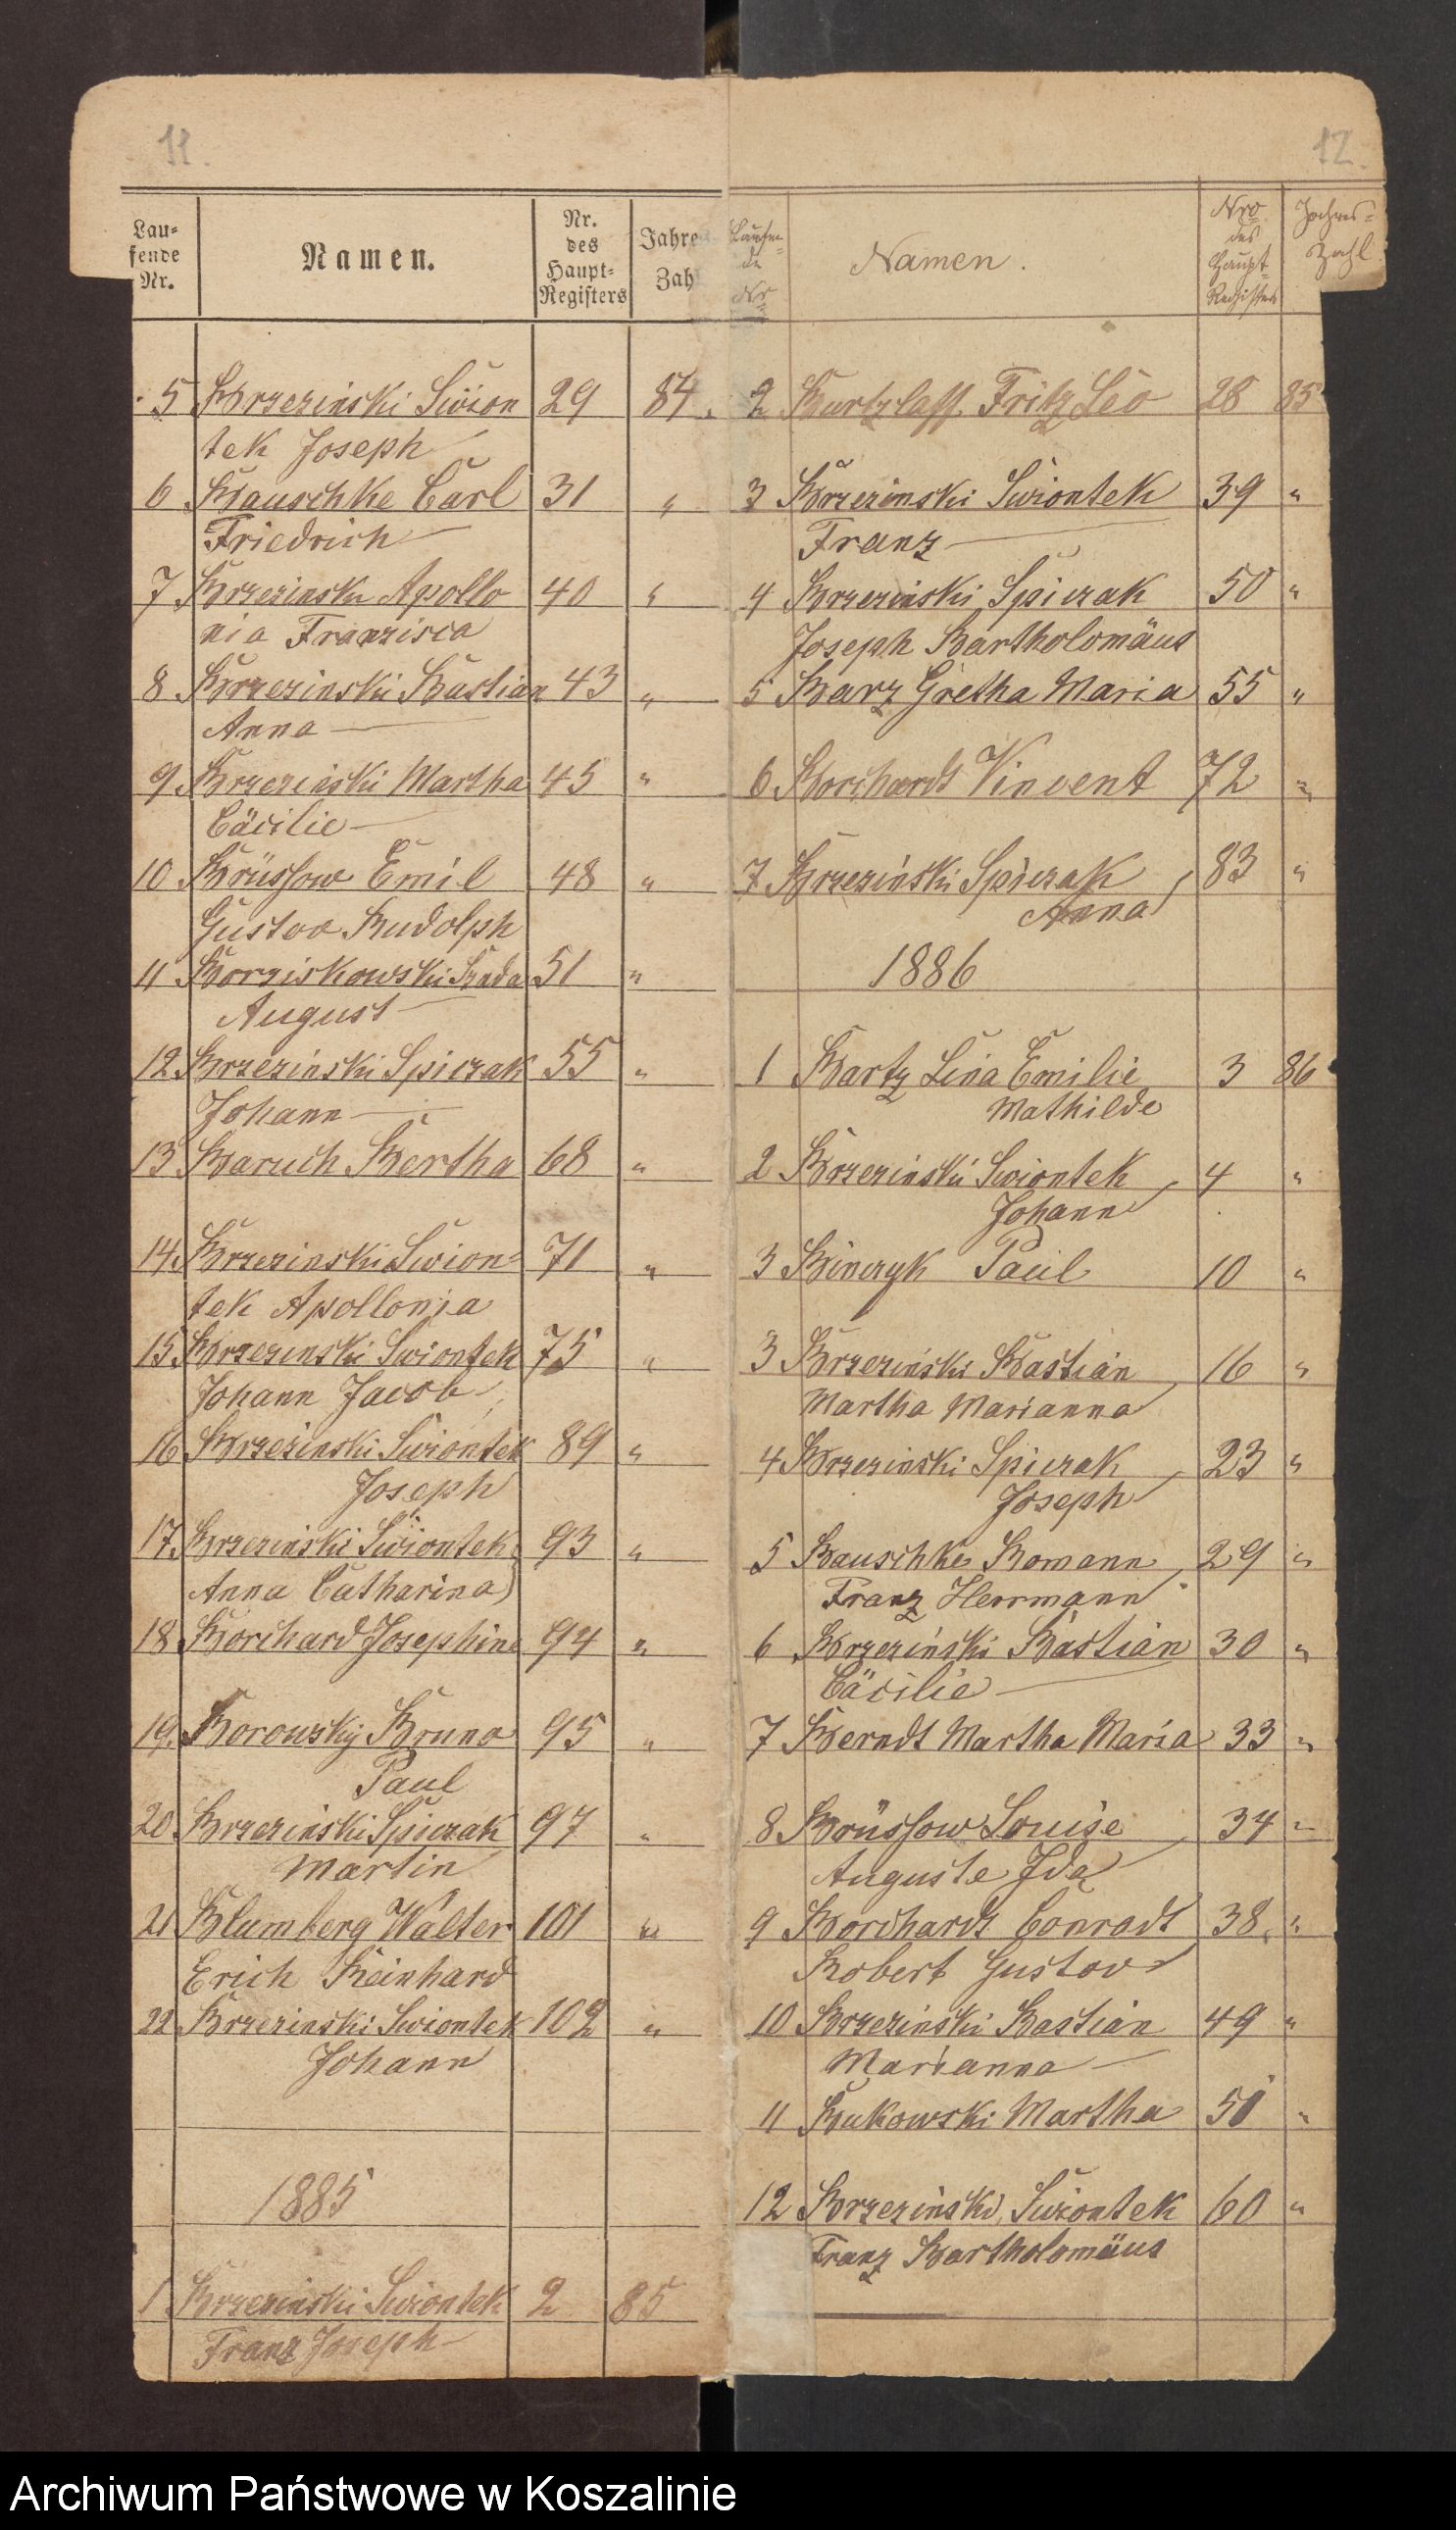 11.
Lau=
fende
Nr.
Namen.
Nr.
des
Haupt=
Registers
Jahres
Zahl
5 Brzezinski Swion 29 84.
tek Joseph
6 Bauschke Carl 31 "
Friedrich
7 Brzezinski Apollo 40 "
nia Franzisca
8 Brzezinski Bastian 43 "
Anna
9 Brzezinski Martha 45 "
Cäcilie
10 Brüssow Emil 48 "
Gustav Rudolph
11 Borziskowski Szada 51 "
August
12 Brzezinski Spiczak 55 "
Johann
13 Baruch Bertha 68 "
14 Brzezinski Swion= 71 "
tek Apollonia
15 Brzezinski Swiontek 75 "
Johann Jacob
16 Brzezinski Swiontek 89 "
Joseph
17 Brzezinski Swiontek 93 "
Anna Catharina
18 Borchard Josephine 94 "
19. Borowsky Bruno 95 "
Paul
20 Brzezinski Spiczak 97 "
Martin
21 Blumberg Walter 101 "
Erich Reinhard
22 Brzezinski Swiontek 102 "
Johann
1885
1 Brzezinski Swiontek 2 85
Franz Joseph
12.
Laufen=
de
Nr
Namen.
Nro
des
Haupt=
Registers
Jahres=
Zahl
2 Burtzlaff Fritz Leo 28 85
3 Brzezinski Swiontek 39 "
Franz
4 Brzezinski Spiczak 50 "
Joseph Bartholomäus
5 Barz Gretha Maria 55 "
6 Borchardt Vincent 72 "
7 Brzezinski Spiczak 83 "
Anna
1886
1 Bartz Lina Emilie 3 86
Mathilde
2 Brzezinski Swiontek 4 "
Johann
3 Binczyk Paul 10 "
3 Brzezinski Bastian 16 "
Martha Marianna
4 Brzezinski Spiczak 23 "
Joseph
5 Bauschke Romann 29 "
Franz Herrmann
6 Brzezinski Bastian 30 "
Cäcilie
7 Berndt Martha Maria 33 "
8 Brüssow Louise 34 "
Auguste Ida
9 Borchardt Conradt 38. "
Robert Gustav
10 Brzezinski Bastian 49 "
Marianna
11 Bukowski Martha 51 "
12 Brzezinski Swiontek 60 "
Franz Bartholomäus
Archiwum Państwowe w Koszalinie